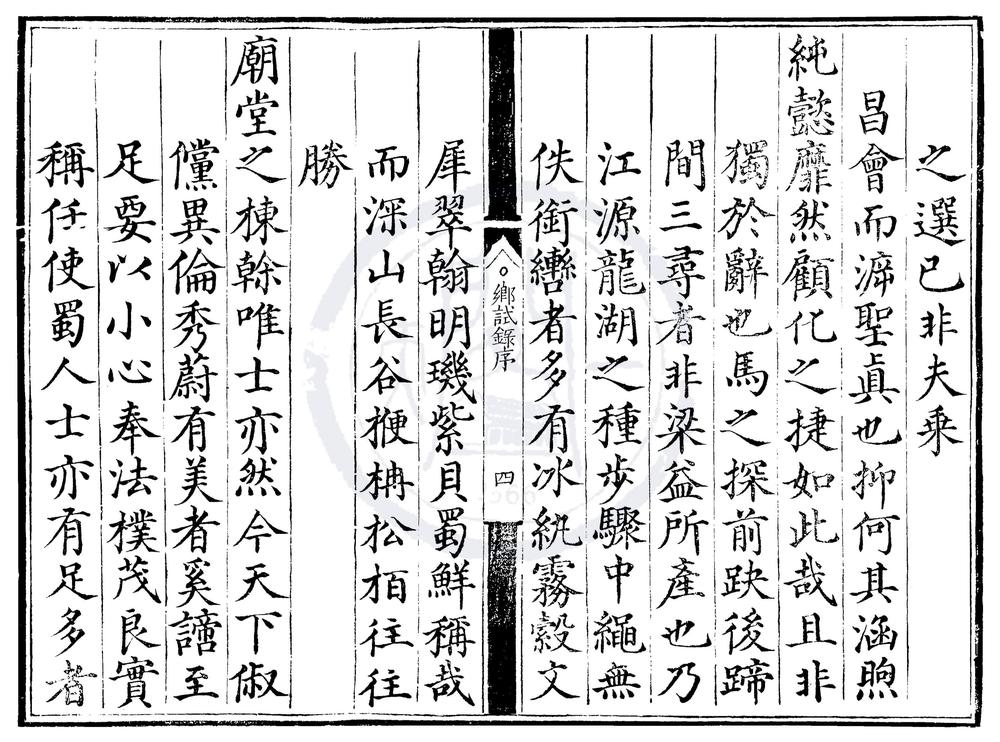 之選已非夫乗
昌會而渧聖眞也抑何其涵煦
純懿靡然顧化之捷如此哉且非
獨於辭也馬之探前趹後蹄
間三尋者非梁益所產也乃
江源龍湖之種步驟中繩無
佚銜轡者多有冰紈霧縠文
鄉試錄序
四
犀翠翰明璣紫貝蜀鮮稱哉
而深山長谷楩柟松栢往往
勝
廟堂之棟榦唯士亦然今天下俶
儻異倫秀蔚有美者奚諦至
足要以小心奉法樸茂良實
稱任使蜀人士亦有足多者